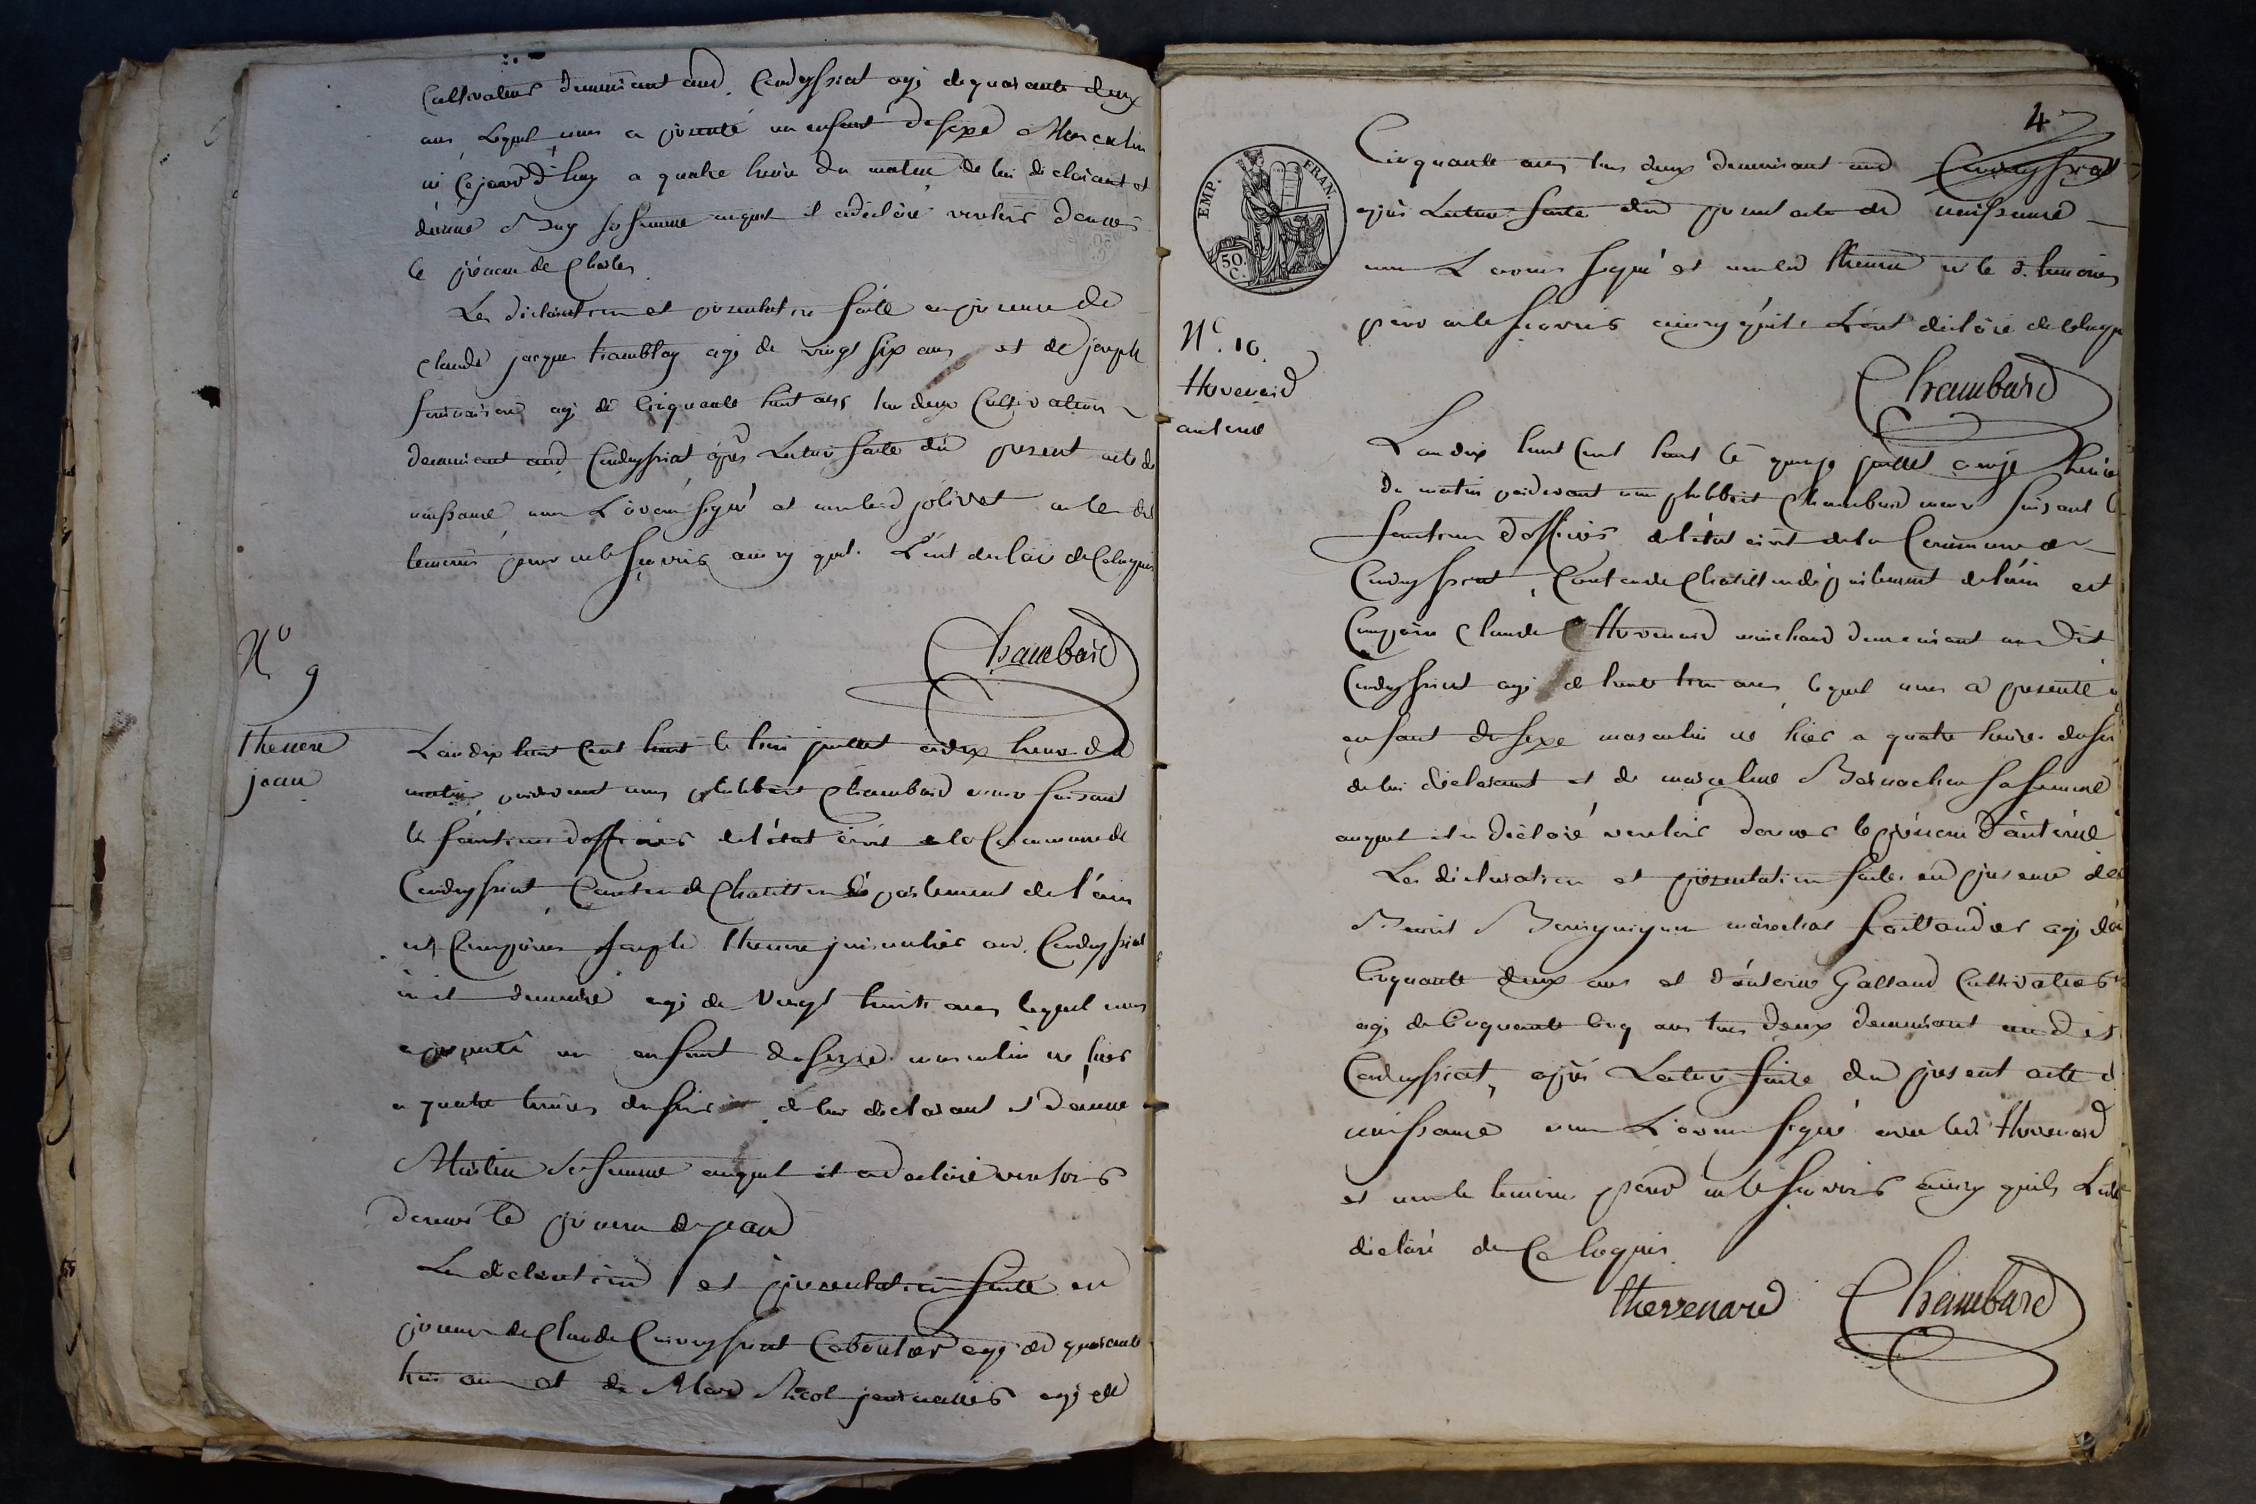 Cultivateur demeurant aud. Condeyssiat agé de quarante deux
ans Lequel nous a presenté un enfant du sexe Masculin
né Cejourd'huy a quatre heure du matin de lui déclarant et
sa femme auquel il a déclaré vouloir donner
le prénom de Charles
Les déclaration et presentation faite en presence de
Claude jacques tramblay agé de vingt six ans et de joseph
agé de Cinquante huit ans tous deux Cultivateurs
demeurant aud Condeyssiat après Lecture faite du present acte de
naissance nous L'avons signé et non led jolivet ni les dits
temoins pour ne le sçavoir ainsy qu'il L'ont déclaré de Ce Requis
Chambard
N° 9
thevene
jean
L'an dix huit Cent huit le trois juillet a dix heures du
matin pardevant nous philibert Chambard maire faisant
les fonctions d'officier de l'état civil de la Commune de
Condeyssiat Canton de Chatillon département de l'ain
est Comparu joseph thevene journalier aud. Condeyssiat
où il demeure agé de vingt huit ans lequel nous
a presenté un enfant du sexe masculin né hier
a quatre heures du soir de lui déclarant et d'
sa femme auquel il a déclaré vouloir
donner le prénom de jean
Les déclaration et presentation faite en
presence de Claude agé de quarante
ans et de Nicol journalier agé de
4
EMP. FRAN.
50. C.
Cinquante ans tous deux demeurant aud Condeyssiat
après Lecture faite du present acte de naissance
nous L'avons signé et non led thevene ni le d. temoins
pour ne le sçavoir ainsy qu'il L'ont déclaré de Ce Requis
Chambard
N°. 10.
thevenard
antoine
L'an dix huit Cent huit le quinze juillet a onze heure
du matin pardevant nous philibert Chambard maire faisant les
fonctions d'officier de l'état civil de la Commune de
Condeyssiat, Canton de Chatillon département de l'ain est
Comparu Claude thevenard marchand demeurant audit
Condeyssiat agé de trente ans lequel nous a presenté un
enfant du sexe masculin né hier a quatre heure du soir
de lui déclarant et de marceline sa femme
auquel il a déclaré vouloir donner le prénom d'antoine
Les déclaration et presentation faite en presence de
Benoit Bourguignon maréchal taillandier agé de
Cinquante deux ans et d'antoine Galland Cultivateur
agé de Cinquante Cinq ans tous deux demeurant audit
Condeyssiat, après Lecture faite du present acte de
naissance nous L'avons signé avec led. thevenard
et non le temoins pour ne le sçavoir ainsy qu'ils L'ont
déclaré de Ce Requis
thevenard Chambard